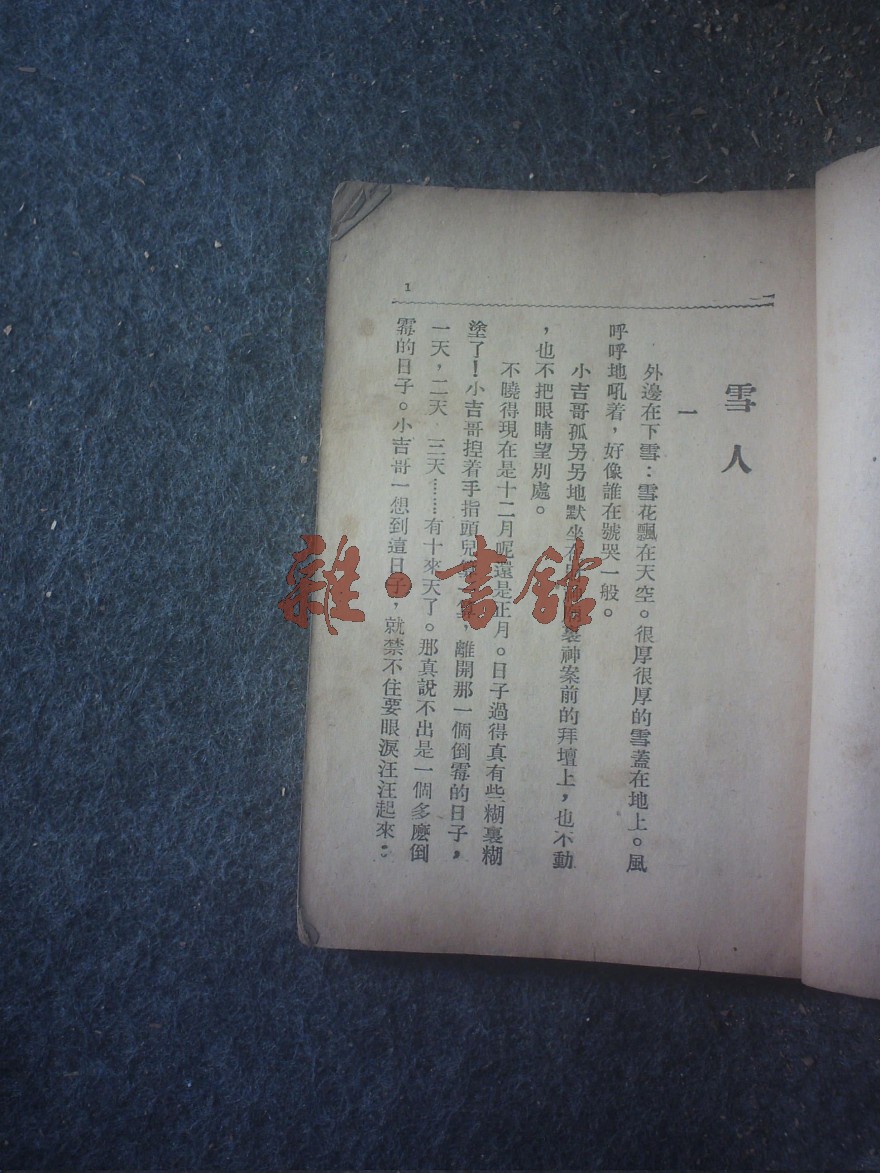 1
雪人
一
外邊在下雪：雪花飄在天空。很厚很厚的雪蓋在地上。風
呼呼地吼着，好像誰在號哭一般。
小吉哥孤另另地默坐在 裏神案前的拜壇上，也不動
，也不把眼睛望別處。
不曉得現在是十二月呢還是正月。日子過得真有些糊裏糊
塗了！小吉哥揑着手指頭兒 算，離開那一個倒霉的日子，
一天，二天 三天……有十來天了。那真說不出是一個多麼倒
霉的日子。小吉哥一想到這日子，就禁不住要眼淚汪汪起來：
雜·書館